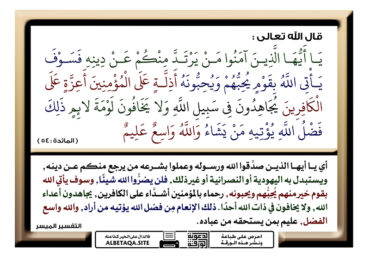 قال الله تعالى :
يَا أَيُّهَا الَّذِينَ آمَنُوا مَنْ يَرْتَدَّ مِنْكُمْ عَنْ دِينِهِ فَسَوْفَ
يَأْتِي اللَّهُ بِقَوْمٍ يُحِبُّهُمْ وَيُحِبُّونَهُ أَذِلَّةٍ عَلَى الْمُؤْمِنِينَ أَعِزَّةٍ عَلَى
الْكَافِرِينَ يُجَاهِدُونَ فِي سَبِيلِ اللَّهِ وَلَا يَخَافُونَ لَوْمَةَ لَائِمٍ ذَلِكَ
فَضْلُ اللَّهِ يُؤْتِيهِ مَنْ يَشَاءُ وَاللَّهُ وَاسِعٌ عَلِيمٌ
( المائدة : ٥٤ )
أي يا أيها الذين صدَّقوا الله ورسوله وعملوا بشرعه من يرجع منكم عن دينه ,
ويستبدل به اليهودية أو النصرانية أو غير ذلك , فلن يضرُّوا الله شيئًا , وسوف يأتي الله
بقوم خير منهم يُحِبُّهم ويحبونه , رحماء بالمؤمنين أشدَّاء على الكافرين , يجاهدون أعداء
الله , ولا يخافون في ذات الله أحدًا . ذلك الإنعام من فضل الله يؤتيه من أراد , والله واسع
الفضل , عليم بمن يستحقه من عباده .
التفسير الميسر
احرص على طباعة
ونشر هذه الورقة
الدال على الخير كفاعله
ALBETAQA.SITE